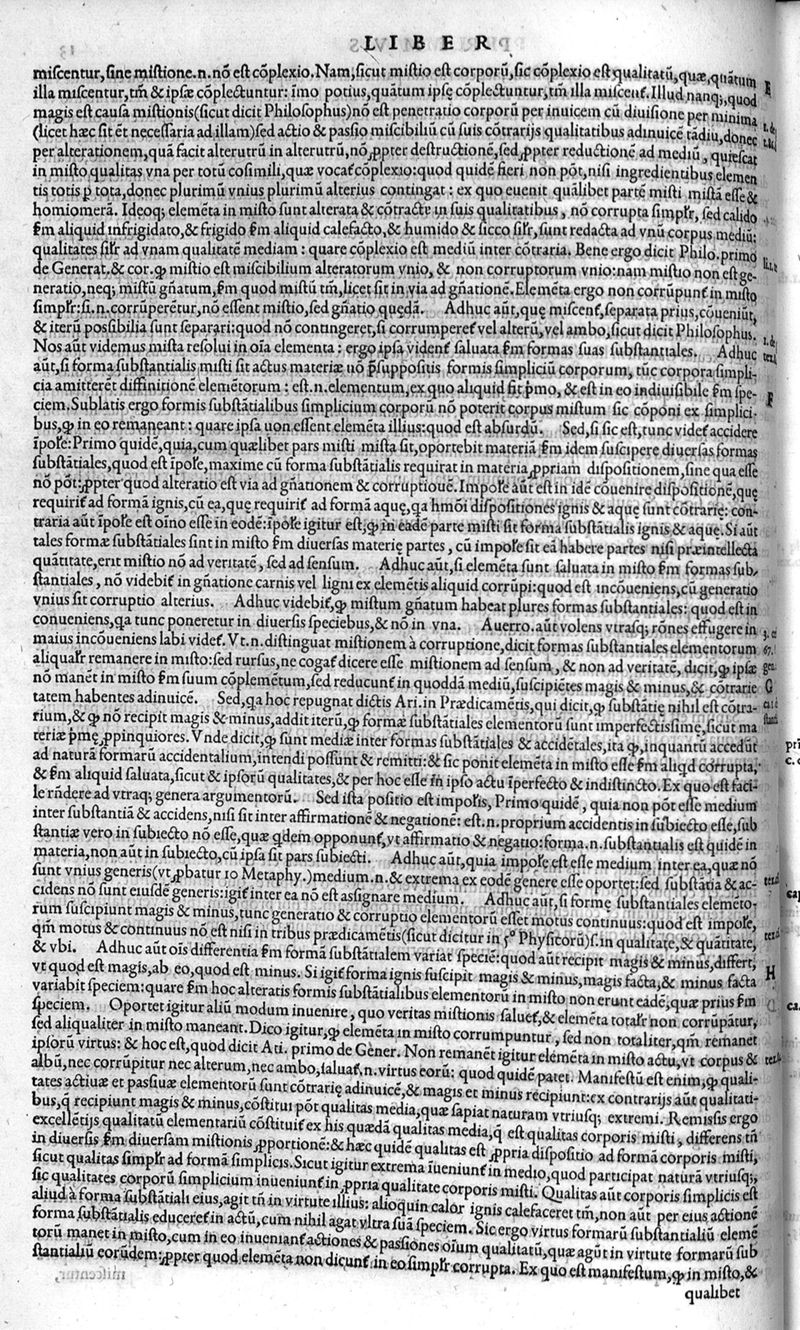 LIBER
miscentur, sine mistione.n.nõ est cõplexio. Nam, sicut mistio est corporũ, sic cõplexio est qualitatũ, quæ, quãtum
illa miscentur, tm̃ & ipsæ cõplectuntur: imo potius, quãtum ipsę cõplectuntur, tm̃ illa miscent̃. Illud nanq;, quod
magis est causa mistionis (sicut dicit Philosophus) nõ est penetratio corporũ per inuicem cũ diuisione per minima
(licet hæc sit ẽt necessaria ad illam) sed actio & passio miscibiliũ cũ suis cõtrarijs qualitatibus adinuicẽ tãdiu, donec
per alterationem, quã facit alterutrũ in alterutrũ, nõ ꝓpter destructionẽ, sed ꝓpter reductionẽ ad mediũ, quiescat
in misto qualitas vna per totũ cosimili, quæ vocat̃ cõplexio: quod quidẽ fieri non põt, nisi ingredientibus elemen
tis totis p tota, donec plurimũ vnius plurimũ alterius contingat: ex quo euenit quãlibet partẽ misti mistã esse &
homiomerã. Ideoq; elemẽta in misto sunt alterata & cõtracte in suis qualitatibus, nõ corrupta simplr̃, sed calido
ẜm aliquid infrigidato, & frigido ẜm aliquid calefacto, & humido & sicco silr̃, sunt redacta ad vnũ corpus mediũ:
qualitates silr̃ ad vnam qualitatẽ mediam: quare cõplexio est mediũ inter cõtraria. Bene ergo dicit Philo. primo
de Generat. & cor. ꝙ mistio est miscibilium alteratorum vnio, & non corruptorum vnio: nam mistio non est ge-
neratio, neq; mistũ gñatum, ẜm quod mistũ tm̃, licet sit in via ad gñationẽ. Elemẽta ergo non corrũpunt̃ in misto
simplr̃: si.n. corrũperẽtur, nõ esset mistio, sed gñatio quedã. Adhuc aũt, quę miscent̃, separata prius, cõueniũt,
& iterũ possibilia sunt separari: quod nõ contingeret, si corrumperet̃ vel alterũ, vel ambo, sicut dicit Philosophus.
Nos aũt videmus mista resolui in oĩa elementa: ergo ipsa vident̃ saluata ẜm formas suas substantiales. Adhuc
aũt, si forma substantialis misti sit actus materiæ nõ p̃suppositis formis simpliciũ corporum, tũc corpora simpli-
cia amitterẽt diffinitionẽ elemẽtorum: est.n. elementum, ex quo aliquid sit p̃mo, & est in eo indiuisibile ẜm spe-
ciem. Sublatis ergo formis substãtialibus simplicium corporũ nõ poterit corpus mistum sic cõponi ex simplici-
bus, ꝙ in eo remaneant: quare ipsa uon essent elemẽta illius: quod est absurdũ. Sed, si sic est, tunc videt̃ accidere
ĩpole: Primo quidẽ, quia, cum quælibet pars misti mista sit, oportebit materiã ẜm idem suscipere diuersas formas
substãtiales, quod est ĩpole, maxime cũ forma substãtialis requirat in materia ꝓpriam dispositionem, sine qua esse
nõ põt: ꝓpter quod alteratio est via ad gñationem & corruptiouẽ. Impole aũt est in idẽ cõuenire dispositionẽ, quę
requirit̃ ad formã ignis, cũ ea, quę requirit̃ ad formã aquę, qa hmõi dispositiones ignis & aquę sunt cõtrarię: con-
traria aũt ĩpole est oĩno esse in eodẽ: ĩpole igitur est, ꝙ in eadẽ parte misti sit forma substãtialis ignis & aquę. Si aũt
tales formæ substãtiales sint in misto ẜm diuersas materię partes, cũ impole sit eã habere partes nisi præintellectã
quãtitate, erit mistio nõ ad veritatẽ, sed ad sensum. Adhuc aũt, si elemẽta sunt saluata in misto ẜm formas sub-
stantiales, nõ videbit̃ in gñatione carnis vel ligni ex elemẽtis aliquid corrũpi: quod est incõueniens, cũ generatio
vnius sit corruptio alterius. Adhuc videbit̃, ꝙ mistum gñatum habeat plures formas substantiales: quod est in
conueniens, qa tunc poneretur in diuersis speciebus, & nõ in vna. Auerro. aũt volens vtrasq; rõnes effugere in
maius incõueniens labi videt̃. Vt.n. distinguat mistionẽ à corruptione, dicit formas substantiales elementorum
aliqualr̃ remanere in misto: sed rursus, ne cogat̃ dicere esse mistionem ad sensum, & non ad veritatẽ, dicit, ꝙ ipsæ
nõ manẽt in misto ẜm suum cõplemẽtum, sed reducunt̃ in quoddã mediũ, suscipiẽtes magis & minus, & cõtrarie
tatem habentes adinuicẽ. Sed, qa hoc repugnat dictis Ari. in Prædicamẽtis, qui dicit, ꝙ substãtię nihil est cõtra-
rium, & ꝙ nõ recipit magis & minus, addit iterũ, ꝙ formæ substãtiales elementorũ sunt imperfectissimę, sicut ma
teriæ p̃mę ꝓpinquiores. Vnde dicit, ꝙ sunt mediæ inter formas substãtiales & accidẽtales, ita ꝙ, inquantũ accedũt
ad naturã formarũ accidentalium, intendi possũt & remitti: & sic ponit elemẽta in misto esse ẜm aliqd corrupta,
& ẜm aliquid saluata, sicut & ipsorũ qualitates, & per hoc esse ĩn ipso actu ĩperfecto & indistincto. Ex quo est faci-
le rñdere ad vtraq; genera argumentorũ. Sed ista positio est impolis, Primo quidẽ, quia non põt esse medium
inter substantiã & accidens, nisi sit inter affirmationẽ & negationẽ: est.n. proprium accidentis in subiecto esse, sub
stantiæ vero in subiecto nõ esse, quæ qdem opponunt̃, vt affirmatio & negatio: forma.n. substantialis est quidẽ in
materia, non aũt in subiecto, cũ ipsa sit pars subiecti. Adhuc aũt, quia impole est esse medium inter ea, quæ nõ
sunt vnius generis (vt ꝓbatur 10 Metaphy.) medium.n. & extrema ex eodẽ genere esse oportet: sed substãtia & ac-
cidens nõ sunt eiusdẽ generis: igit̃ inter ea nõ est assignare medium. Adhuc aũt, si formę substantiales elemẽto-
rum suscipiunt magis & minus, tunc generatio & corruptio elementorũ esset motus continuus: quod est impole,
qm̃ motus & continuus nõ est nisi in tribus prædicamẽtis (sicut dicitur in 5° Physicorũ) s. in qualitate, & quãtitate,
& vbi. Adhuc aũt oĩs differentia ẜm formã substãtialem variat speciẽ: quod aũt recipit magis & minus, differt,
vt quod est magis, ab eo, quod est minus. Si igit̃ forma ignis suscipit magis & minus, magis facta, & minus facta
variabit speciem: quare ẜm hoc alteratis formis substãtialibus elementorũ in misto non erunt eadẽ, quæ prius ẜm
speciem. Oportet igitur aliũ modum inuenire, quo veritas mistionis saluet̃, & elemẽta totalr̃ non corrũpãtur,
sed aliqualiter in misto maneant. Dico igitur, ꝙ elemẽta in misto corrumpuntur, sed non totaliter, qm̃ remanet
ipsorũ virtus: & hoc est, quod dicit Ari. primo de Gener. Non remanẽt igitur elemẽta in misto actu, vt corpus &
albũ, nec corrũpitur nec alterum, nec ambo, saluat̃.n. virtus eorũ: quod quidẽ patet. Manifestũ est enim, ꝙ quali-
tates actiuæ et passiuæ elementorũ sunt cõtrarię adinuicẽ, & magis et minus recipiunt: ex contrarijs aũt qualitati-
bus, q̃ recipiunt magis & minus, cõstitui põt qualitas media, quæ sapiat naturam vtriusq; extremi. Remissis ergo
excellẽtijs qualitatũ elementariũ cõstituit̃ ex his quædã qualitas media, q̃ est qualitas corporis misti, differens tñ
in diuersis ẜm diuersam mistionis ꝓportionẽ: & hæc quidẽ qualitas est ꝓpria dispositio ad formã corporis misti,
sicut qualitas simplr̃ ad formã simplicis. Sicut igitur extrema ĩueniunt̃ in medio, quod participat naturã vtriusq;,
sic qualitates corporũ simplicium inueniunt̃ in ꝓpria qualitate corporis misti. Qualitas aũt corporis simplicis est
aliud à forma substãtiali eius, agit tñ in virtute illius: alioquin calor ignis calefaceret tm̃, non aũt per eius actionẽ
forma substãtialis educeret̃ in actũ, cum nihil agat vltra suã speciem. Sic ergo virtus formarũ substantialiũ elemẽ
torũ manet in misto, cum in eo inueniant̃ actiones & passiones oĩum qualitatũ, quæ agũt in virtute formarũ sub
stantialiũ eorũdem: ꝓpter quod elemẽta non dicunt̃ in eo simplr̃ corrupta. Ex quo est manifestum, ꝙ in misto, &
qualibet